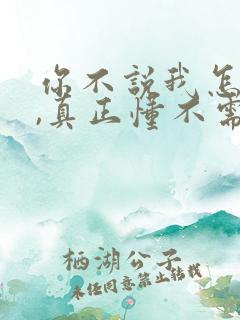 你不說我怎
,真正懂不需
栖湖公子
未经同意禁止转载